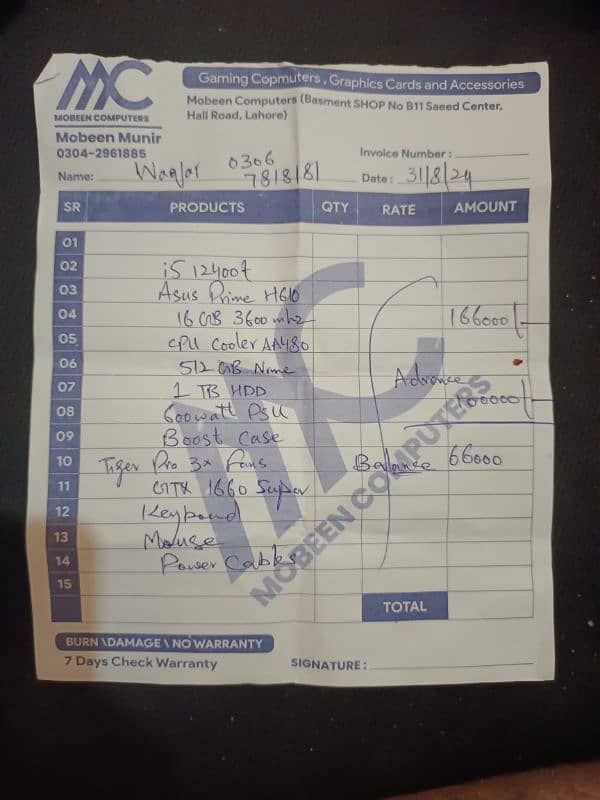 MC
MOBEEN COMPUTERS
Gaming Copmuters , Graphics Cards and Accessories
Mobeen Computers (Basment SHOP No B11 Saeed Center,
Hall Road, Lahore)
Mobeen Munir
0304-2961885
Invoice Number :
Name: Waqar 0306
781818|
Date : 31/8/24
SR PRODUCTS QTY RATE AMOUNT
01
02 i5 12400f
03 Asus Prime H610
04 16 GB 3600 mhz 166000/-
05 CPU Cooler AA480
06 512 GB Nvme
07 1 TB HDD Advance
08 600watt PSU 100000/-
09 Boost Case
10 Tiger Pro 3x Fans Balance 66000
11 GTX 1660 Super
12 Keyboard
13 Mouse
14 Power Cables
15
TOTAL
MOBEEN COMPUTERS
BURN \DAMAGE \ NO WARRANTY
7 Days Check Warranty
SIGNATURE :